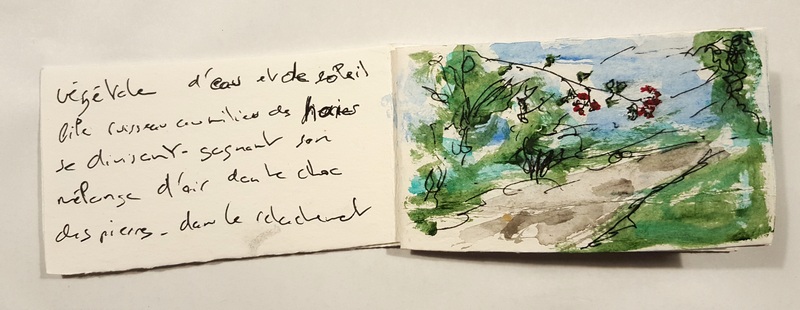 végétale d'eau et de soleil
file ruisseau au milieu des haies
se divisant - gagnant son
mélange d'air dans le choc
des pierres - dans le relachement